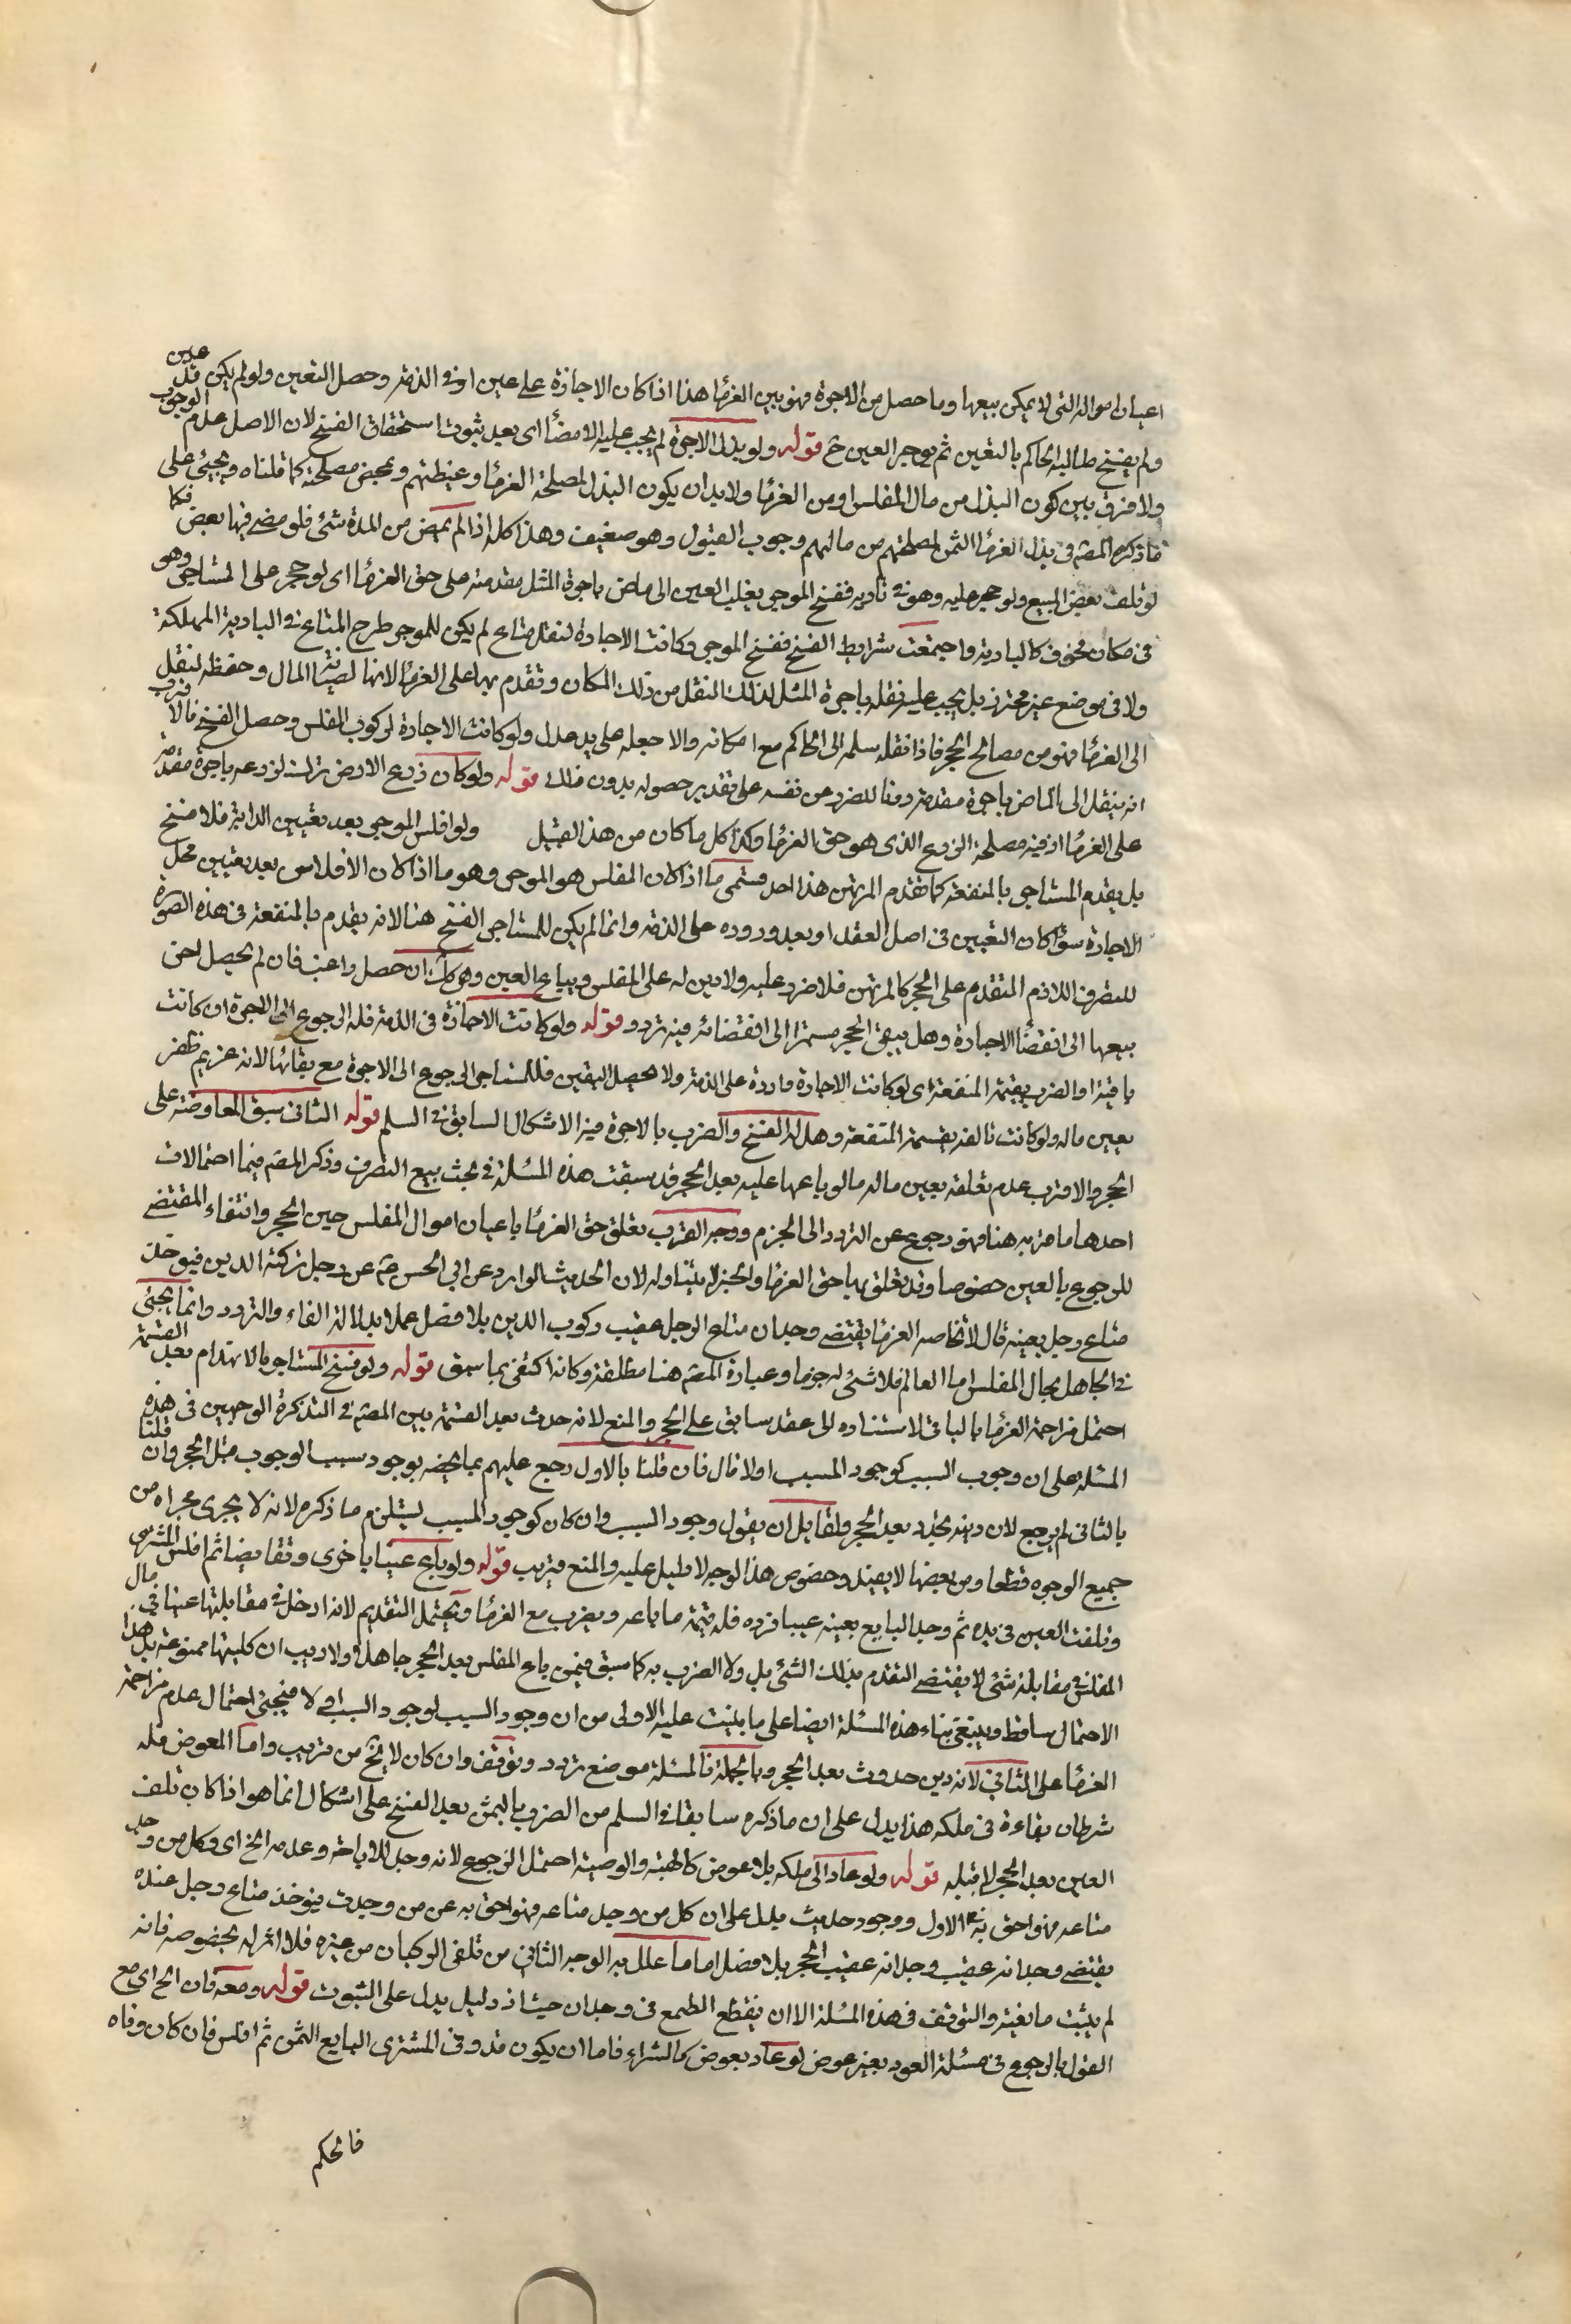 اعيان امواله التي لا يمكن بيعها وما حصل من الاجرة فهو بين الغرماء هذا اذا كان الاجارة على عين او في الذمة وحصل التعين ولو لم يكن قد عين
ولم يفسخ طالبه الحاكم بالتعين ثم يوجر العين ح قوله ولو بذل الاجرة لم يجب عليه الامضاء اى بعد ثبوت استحقاق الفسخ لان الاصل عدم الوجوب
ولا فرق بين كون البذل من مال المفلس او من الغرماء ولا بد ان يكون البذل لمصلحة الغرماء وغبطتهم وبمحض مصلحته كما قلناه ويجيئ على
ما ذكره المصه في بذل الغرماء الثمن لمصلحتهم من مالهم وجوب القبول وهو ضعيف وهذا كله اذا لم يمض من المدة شئ فلو مضى فيها بعض فكما
لو تلف بعض المبيع ولو حجر عليه وهو في بادية ففسخ الموجر يغلب العين الى مامن باجرة المثل مقدمة على حق الغرماء اى لو حجر على المستاجر وهو
في مكان مخوف كالبادية واجتمعت شرايط الفسخ ففسخ الموجر وكانت الاجارة لنقل متاع لم يكن للموجر طرح المتاع في البادية المهلكة
ولا في موضع غير محترز بل يجب عليه نقله باجرة المثل لذلك النقل من ذلك المكان وتقدم بها على الغرماء لانها لصيانة المال وحفظه لنقل
الى الغرماء فهو من مصالح الحجر فاذا نقله سلمه الى الحاكم مع امكانه والا جعله على يد عدل ولو كانت الاجارة لركوب المفلس وحصل الفسخ فالاقرب
انه ينقل الى المامن باجرة مقدمة دفعا للضرر عن نفسه على تقدير حصوله بدون ذلك قوله ولو كان زرع الارض ترك لزرعه باجرة مقدمة
على الغرماء اذ فيه مصلحة الزرع الذى هو حق الغرماء وكذا كل ما كان من هذا القبيل ولو افلس الموجر بعد تعيين الدابة فلا فسخ
بل يقدم المستاجر بالمنفعة كما تقدم المرتهن هذا احد قسمى ما اذا كان المفلس هو الموجر وهو ما اذا كان الافلاس بعد تعيين محل
الاجارة سواء كان التعيين في اصل العقد او بعد وروده على الذمة وانما لم يكن للمستاجر الفسخ هنا لانه يقدم بالمنفعة في هذه الصورة
للتصرف اللازم المتقدم على الحجر كالمرتهن فلا ضرر عليه ولا دين له على المفلس ويباع العين وهى كك ان حصل راغب فان لم يحصل اخر
بيعها الى انقضاء الاجارة وهل يبقى الحجر مستمرا الى انقضائه فيه تردد قوله ولو كانت الاجارة في الذمة فله الرجوع الى الاجرة ان كانت
باقية او الضرب بقيمة المنفعة اى لو كانت الاجارة واردة على الذمة ولا يحصل التعين فللمستاجر الرجوع الى الاجرة مع بقائها لانه غريم ظفر
بعين ماله ولو كانت تالفة بقسمة المنفعة وهل له الفسخ والضرب بالاجرة فيه الاشكال السابق في السلم قوله الثانى سبق المعاوضة على
الحجر والاقرب عدم تعلقه بعين ماله ما لو باعها عليه بعد الحجر قد سبقت هذه المسئلة في بحث بيع التصرف وذكر المصه فيها احتمالات
احدها ما قربه هنا فهو رجوع عن التردد الى الجزم ووجه القرب تعلق حق الغرماء باعيان اموال المفلس حين الحجر وانتفاء المقتضى
للرجوع بالعين خصوصا وقد تعلق بها حق الغرماء والخبر لا يتناوله لان الحديث الوارد عن ابى الحسن ع عن رجل تركته الدين فيوجد
متاع رجل بعينه قال لا يحاصه الغرماء يقتضى وجدان متاع الرجل عقيب ركوب الدين بلا فصل عملا بدلالة الفاء والتردد وانما يجئ
في الجاهل بحال المفلس اما العالم فلا شئ له جزما وعبارة المصه هنا مطلقة وكانه اكتفى بما سبق قوله ولو فسخ المستاجر بالانهدام بعد القسمة
احتمل مزاحمة الغرماء بالباقى لاستناده الى عقد سابق على الحجر والمنع لانه حدث بعد القسمة بين المصه في التذكرة الوجهين في هذه
المسئلة على ان وجوب السبب كوجود المسبب اولا قال فان قلنا بالاول رجع عليهم بما يخصه بوجود سبب الوجوب قبل الحجر وان قلنا
بالثانى لم يرجع لان دينه تجدد بعد الحجر ولقايل ان يقول وجود السبب وان كان كوجود المسبب ليستلزم ما ذكره لانه لا يجرى مجراه من
جميع الوجوه قطعا ومن بعضها لا يفيد وخصوص هذا الوجه لا دليل عليه والمنع قريب قوله ولو باع عينا باخرى وتقابضا ثم افلس المشترى
وتلفت العين في يده ثم وجد البايع بعينه عيبا فرده فله قيمة ما باعه ويضرب مع الغرماء ويحتمل التقديم لانه ادخل في مقابلتها عينا في مال
المفلس في مقابلة شئ لا يقتضى التقدم بذلك الشئ بل ولا الضرب به كما سبق فيمن باع المفلس بعد الحجر جاهلا ولا ريب ان كليتها ممنوعة بل هذا
الاحتمال ساقط وينبغى بناء هذه المسئلة ايضا على ما بنيت عليه الاولى من ان وجود السبب لوجود السبب او لا فيجئ احتمال عدم مزاحمة
الغرماء على الثانى لانه دين حدوث بعد الحجر وبالجملة فالمسئلة موضع تردد وتوقف وان كان لا يخ من قريب واما المعوض فله
شرطان بقاءه في ملكه هذا يدل على ان ما ذكره سابقا في السلم من الضرب بالثمن بعد الفسخ على اشكال انما هو اذا كان تلف
العين بعد الحجر لا قبله قوله ولو عاد الى ملكه بلا عوض كالهبة والوصية احتمل الرجوع لانه وجد للاباحة وعدمه الخ اى وكل من وجد
متاعه فهو احق به الاول ووجود حديث يدل على ان كل من وجد متاعه فهو احق به عن من وجدت فيوخذ متاع رجل عنده
يقتضى وجدانه عقيب وجدانه عقيب الحجر بلا فصل اما ما علل به الوجه الثانى من تلقى الركبان من غيره فلا اثر له بخصوصه فانه
لم يثبت مانعية والتوقف في هذه المسئلة الا ان ينقطع الطمع في وجدان حيث اذ دليل يدل على الثبوت قوله ومعه فان الخ اى مع
القول بالرجوع في مسئلة العود بغير عوض لو عاد بعوض كالشراء فاما ان يكون قد وفى المشترى البايع الثمن ثم افلس فان كان وفاه
فالحكم